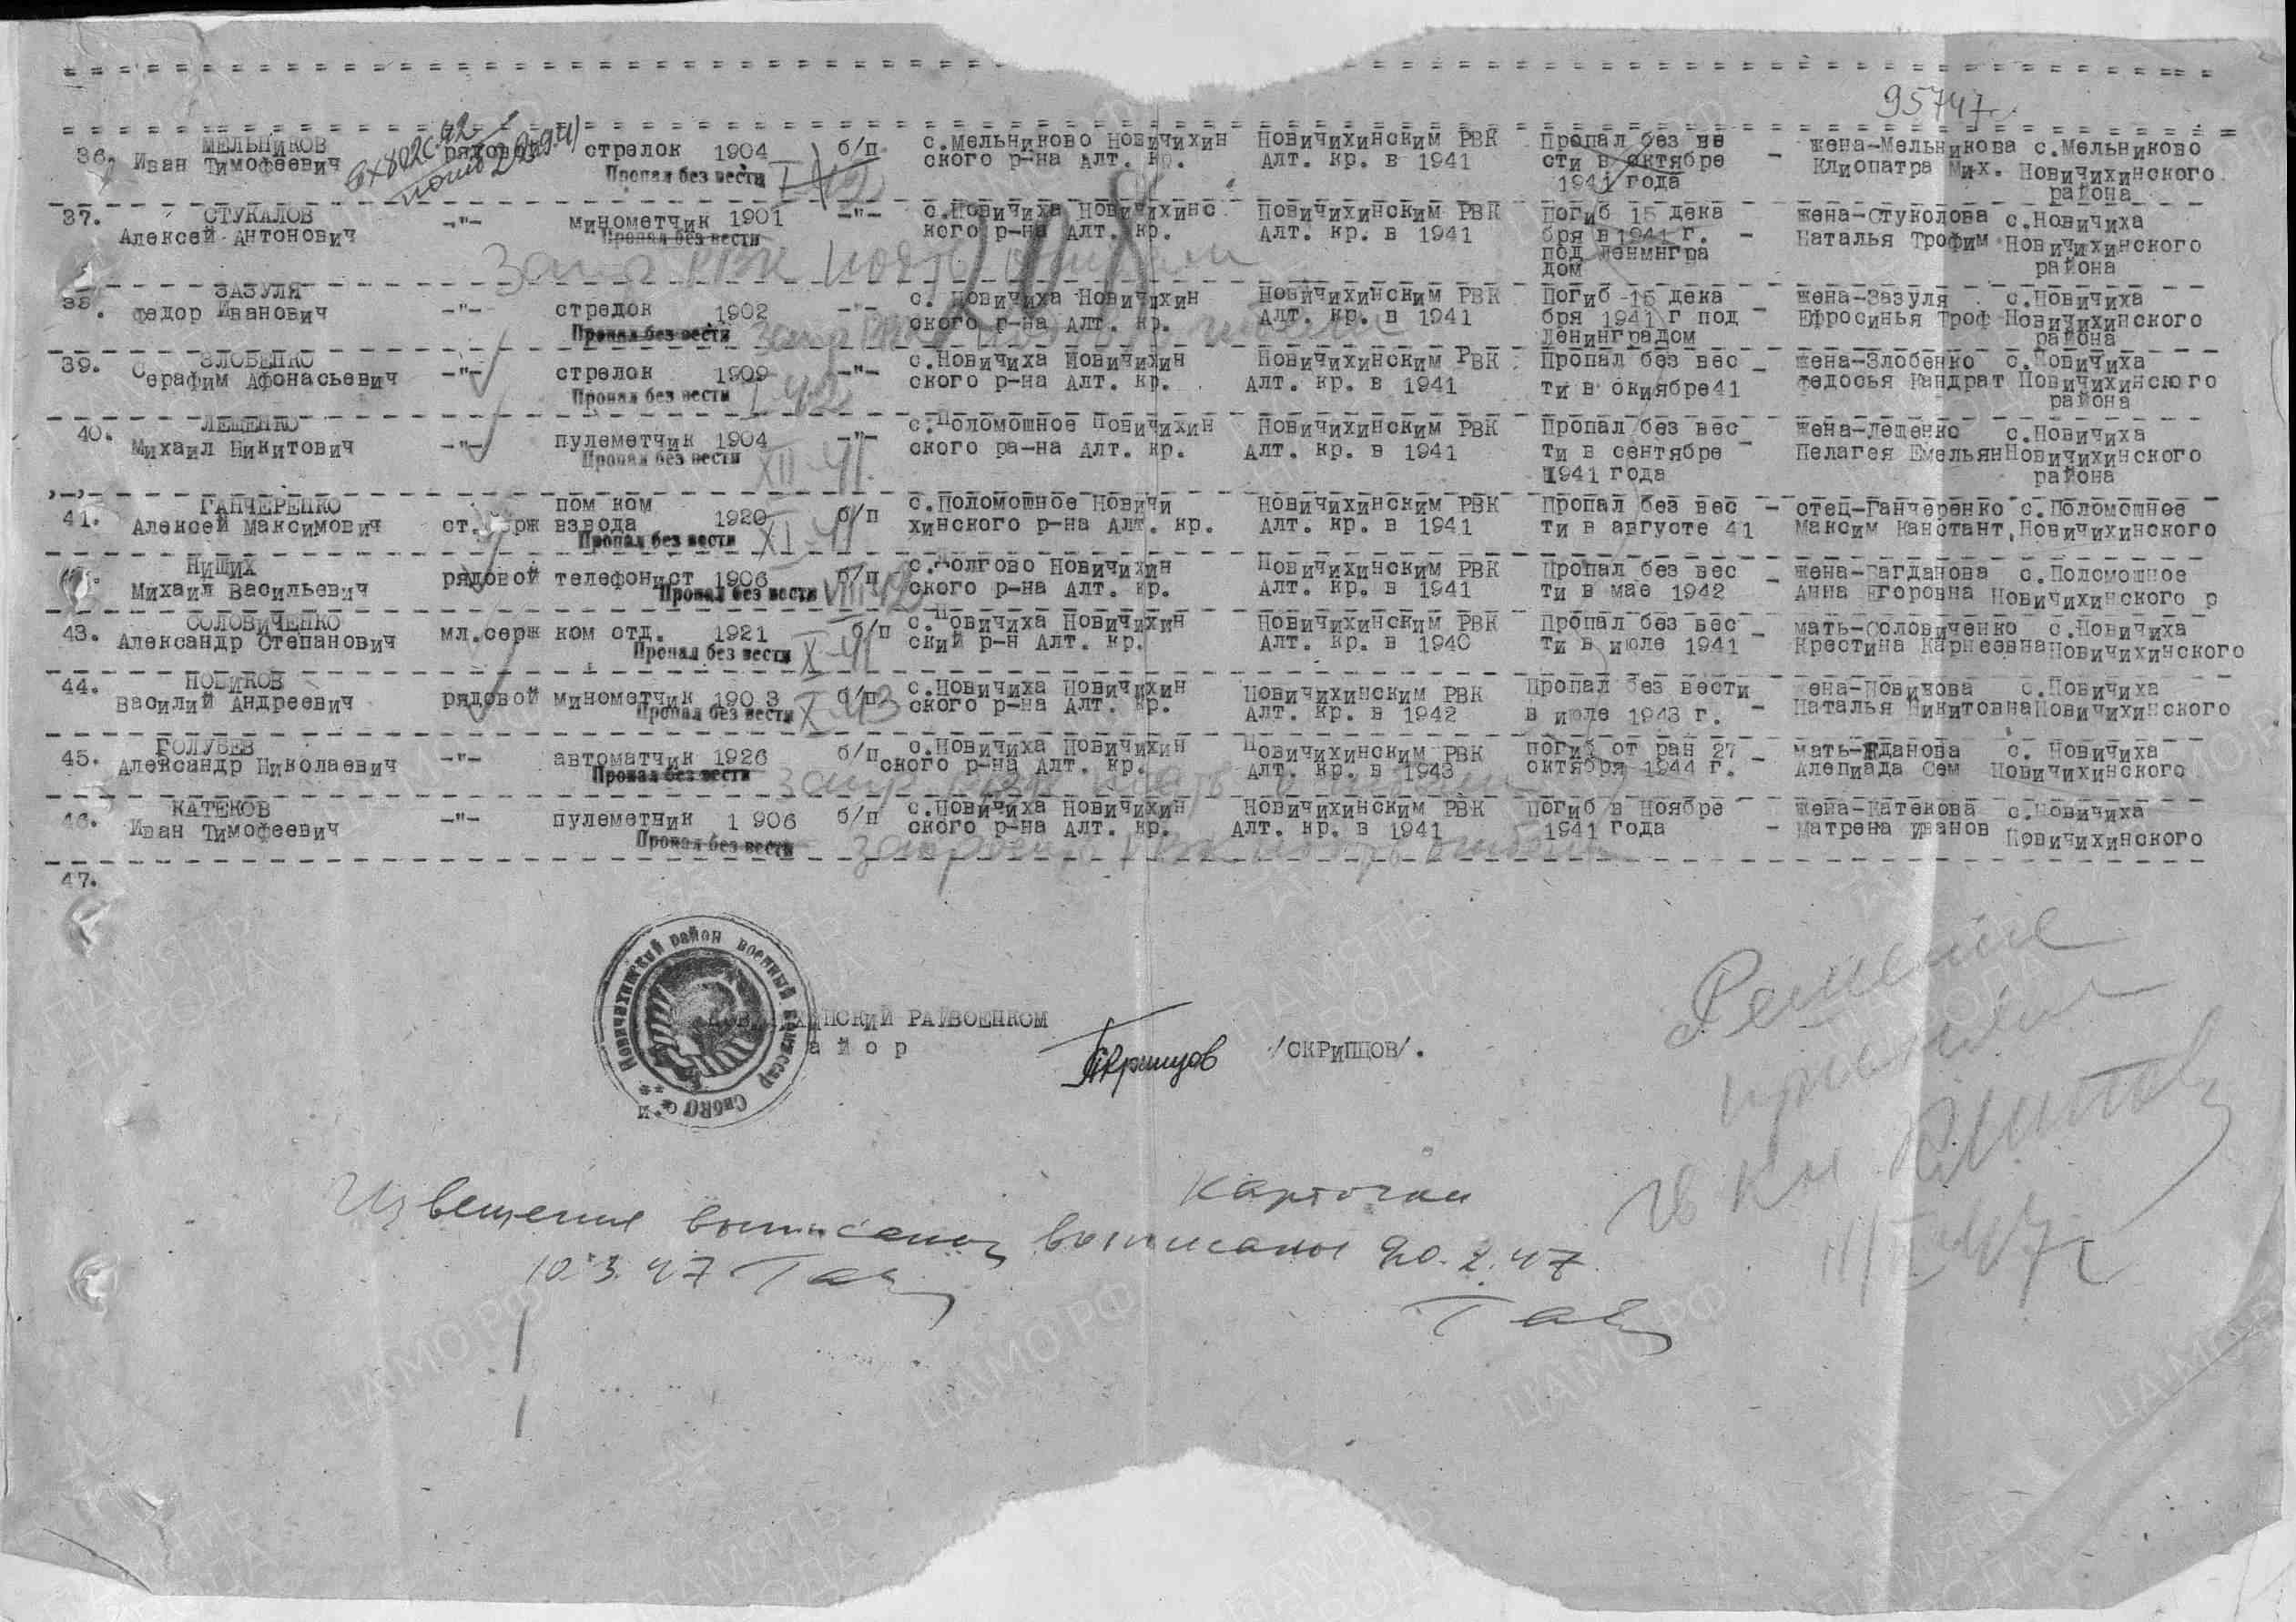 95747с.
36. МЕЛЬНИКОВ рядовой стрелок 1904 б/п с.Мельниково Новичихин Новичихинским РВК Пропал без ве жена-Мельникова с.Мельниково
Иван Тимофеевич ского р-на Алт. кр. Алт. кр. в 1941 сти в октябре - Клиопатра Мих. Новичихинского
Пропал без вести 1941 года района
37. СТУКАЛОВ -"- минометчик 1901 -"- с.Новичиха Новичихинс Новичихинским РВК Погиб 15 дека жена-Стуколова с.Новичиха
Алексей Антонович кого р-на Алт. кр. Алт. кр. в 1941 бря в 1941 г. - Наталья Трофим Новичихинского
Пропал без вести под Ленингра района
дом
38. ЗАЗУЛЯ -"- стредок 1902 -"- с. Новичиха Новичихин Новичихинским РВК Погиб 15 дека жена-Зазуля с.Новичиха
Федор Иванович ского р-на Алт. кр. Алт. кр. в 1941 бря 1941 г под - Ефросинья Троф Новичихинского
Пропал без вести Ленинградом района
39. ЗЛОБЕНКО -"- стрелок 1909 -"- с.Новичиха Новичихин Новичихинским РВК Пропал без вес - жена-Злобенко с.Новичиха
Серафим Афонасьевич ского р-на Алт. кр. Алт. кр. в 1941 ти в окиябре41 Федосья Кандрат Новичихинсюго
Пропал без вести I-42 района
40. ЛЕЩЕНКО -"- пулеметчик 1904 -"- с.Поломошное Новичихин Новичихинским РВК Пропал без вес жена-Лещенко с.Новичиха
Михаил Никитович ского ра-на Алт. кр. Алт. кр. в 1941 ти в сентябре - Пелагея ЕмельянНовичихинского
Пропал без вести XII-41. 1941 года района
41. ГАНЧЕРЕНКО пом ком с.Поломошное Новичи Новичихинским РВК Пропал без вес - отец-Ганчеренко с.Поломошное
Алексей Максимович ст.серж взвода 1920 б/п хинского р-на Алт. кр. Алт. кр. в 1941 ти в августе 41 Максим Канстант.Новичихинского
Пропал без вести XI-41
НИЩИХ рядовой телефонист 1906 б/п с.Долгово Новичихин Новичихинским РВК Пропал без вес жена-Багданова с.Поломошное
Михаил Васильевич ского р-на Алт. кр. Алт. кр. в 1941 ти в мае 1942 - Анна Егоровна Новичихинского р
Пропал без вести VIII-42
43. СОЛОВИЧЕНКО мл.серж ком отд. 1921 б/п с.Новичиха Новичихин Новичихинским РВК Пропал без вес мать-Соловиченко с.Новичиха
Александр Степанович ский р-н Алт. кр. Алт. кр. в 1940 ти в июле 1941 - Крестина КарнеевнаНовичихинского
Пропал без вести X-41
44. НОВИКОВ рядовой минометчик 190 3 б/п с.Новичиха Новичихин Новичихинским РВК Пропал без вести жена-Новикова с.Новичиха
Василий Андреевич ского р-на Алт. кр. Алт. кр. в 1942 в июле 1943 г. - Наталья НикитовнаНовичихинского
Пропал без вести X-43
45. ГОЛУБЕВ -"- автоматчик 1926 б/п с.Новичиха Новичихин Новичихинским РВК погиб от ран 27 мать-Жданова с. Новичиха
Александр Николаевич ского р-на Алт. кр. Алт. кр. в 1943 октября 1944 г. - Алепиада Сем Новичихинского
Пропал без вести
46. КАТЕКОВ -"- пулеметчик 1 906 б/п с.Новичиха Новичихин Новичихинским РВК Погиб в Ноябре жена-Катекова с.Новичиха
Иван Тимофеевич ского р-на Алт. кр. Алт. кр. в 1941 1941 года - Матрена Иванов Новичихинского
Пропал без вести
47.
Новичихинский район военный комиссар
СибВО
НОВИЧИХИНСКИЙ РАЙВОЕНКОМ
айор Скрипцов /СКРИПЦОВ/.
Решение
Извещения выписаны
10.3.47
Карточки
выписаны 20.2.47